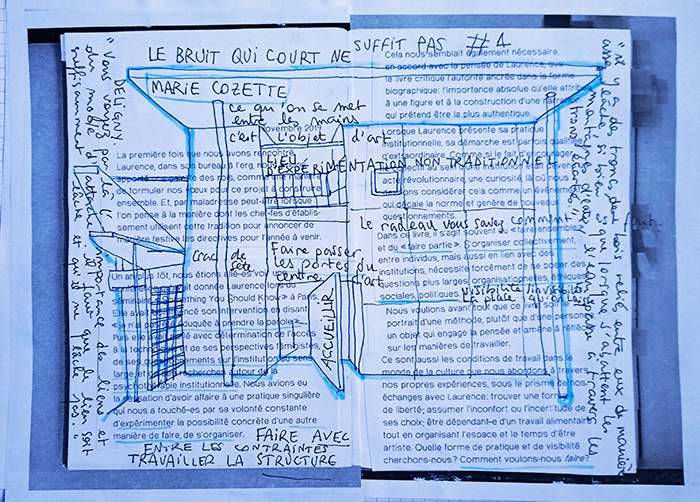 LE BRUIT QUI COURT NE SUFFIT PAS #4
MARIE COZETTE
ce qu'on se met
entre les mains
c'est l'objet d'art
novembre 2019
LIEU
D'EXPERIMENTATION NON TRADITIONNEL
La première fois que nous avons rencontré
Laurence, dans son bureau à l'erg, nous
des rois, comme
de formuler nos vœux pour ce projet à construire
ensemble. Et, par maladresse peut-être lorsque
l'on pense à la manière dont les chef·fes d'établis-
sement utilisent cette tradition pour annoncer de
manière festive les directives pour l'année à venir.
crac de
sète
Faire passer
les portes du
centre d'art
ACCUEILLIR
Un an plus tôt, nous étions allé·es voir une
donné
Laurence lors du
thing You Should Know » à Paris.
son intervention en disant
n'a
éduquée à prendre la parole
avec détermination de l'accès
à la techno
de ses perspectives féministes,
de ses
sur l'institution au sens
large, et
recherches autour de la
psychothérapie institutionnelle. Nous avions eu
la sensation d'avoir affaire à une pratique singulière
qui nous a touché·es par sa volonté constante
d'expérimenter la possibilité concrète d'une autre
manière de faire, de s'organiser.
FAIRE AVEC
ENTRE LES CONTRAINTES
TRAVAILLER LA STRUCTURE
Cela nous semblait également nécessaire,
en accord avec la pensée de Laurence, que
le livre critique l'autorité ancrée dans la forme
biographique: l'importance absolue qu'elle attribue
à une figure et à la construction d'une narration
qui prétend être la plus authentique.
Lorsque Laurence présente sa pratique
institutionnelle, sa démarche est parfois qualifiée
d'extraordinaire. Comme si le fait
acte révolutionnaire, une curiosité, là où
considérer cela comme un événement
qui décale la norme et génère de nouveaux
questionnements.
Le radeau vous savez comment
fait
Dans ce livre, il s'agit souvent de « faire ensemble »
et du « faire partie ». S'organiser collectivement,
entre individus, mais aussi en lien avec des
institutions, nécessite forcément de se poser des
questions plus larges: organisationnelles, éthiques,
sociales, politiques
Visibilité/invisibilité
la place qu'on laisse
Nous voulions avant tout que ce livre soit le
portrait d'une méthode, plutôt que d'une personne,
un objet qui engage la pensée et amène à réfléchir
sur les manières de travailler.
Ce sont aussi les conditions de travail dans le
monde de la culture que nous abordons à travers
nos propres expériences, sous le prisme de nos
échanges avec Laurence: trouver une forme
de liberté; assumer l'inconfort ou l'incertitude de
ses choix; être dépendant·e d'un travail alimentaire
tout en organisant l'espace et le temps d'être
artiste. Quelle forme de pratique et de visibilité
cherchons-nous? Comment voulons-nous faire?
DELIGNY
"Vous voyez par là l'importance des liens et
du mode d'attache, tant que le lien soit
suffisamment lâche et qu'il ne lâche pas."
"il y a des troncs de bois reliés entre eux de manière
assez lâche si bien que lorsque s'abattent les
montagnes d'eau, l'eau passe à travers les
troncs